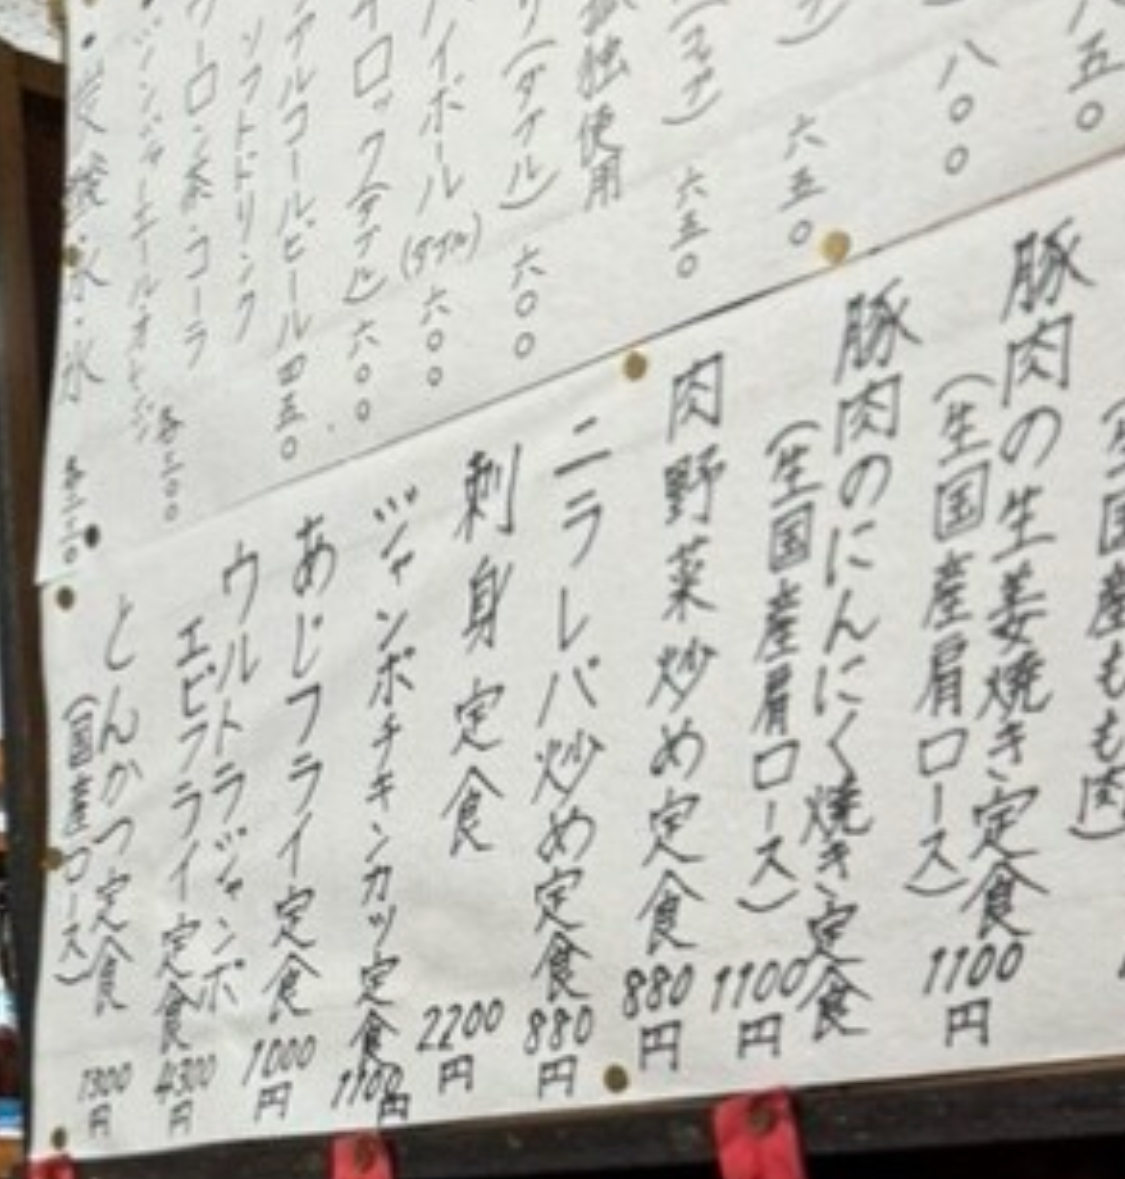 八五〇
八〇〇
六五〇
六五〇
独使用
(ダブル) 六〇〇
イボール(ダブル) 六〇〇
ロック(ダブル) 六〇〇
アルコールビール 四五〇
ソフトドリンク
ウーロン茶・コーラ
ジンジャーエール・オレンジ 各二〇〇
・炭酸・氷・水
豚肉の生姜焼き定食
(生国産肩ロース)
1100円
豚肉のにんにく焼き定食
(生国産肩ロース)
1100円
肉野菜炒め定食 880円
ニラレバ炒め定食 880円
刺身定食 2200円
ジャンボチキンカツ定食 1100円
あじフライ定食 1000円
ウルトラジャンボ
エビフライ定食 4300円
とんかつ定食
(国産ロース)
1300円